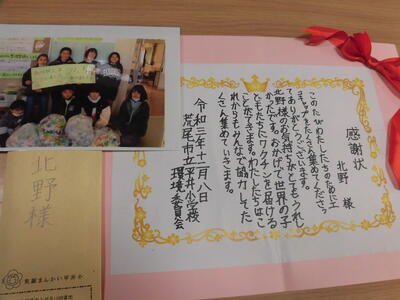 感謝状
北野 様
このたびわたしたちのためにエ
キャップをたくさん集めてくださっ
てありがとうございます。
北野様のお気持ちがとてもうれし
かったです。おかげで世界の子
どもたちにワクチンを届ける
ことができます。わたしたちはこ
れからもみんなで協力してた
くさん集めていきます。
令和三年十二月八日
荒尾市立平井小学校
環境委員会
北野様
笑顔まんかい平井小